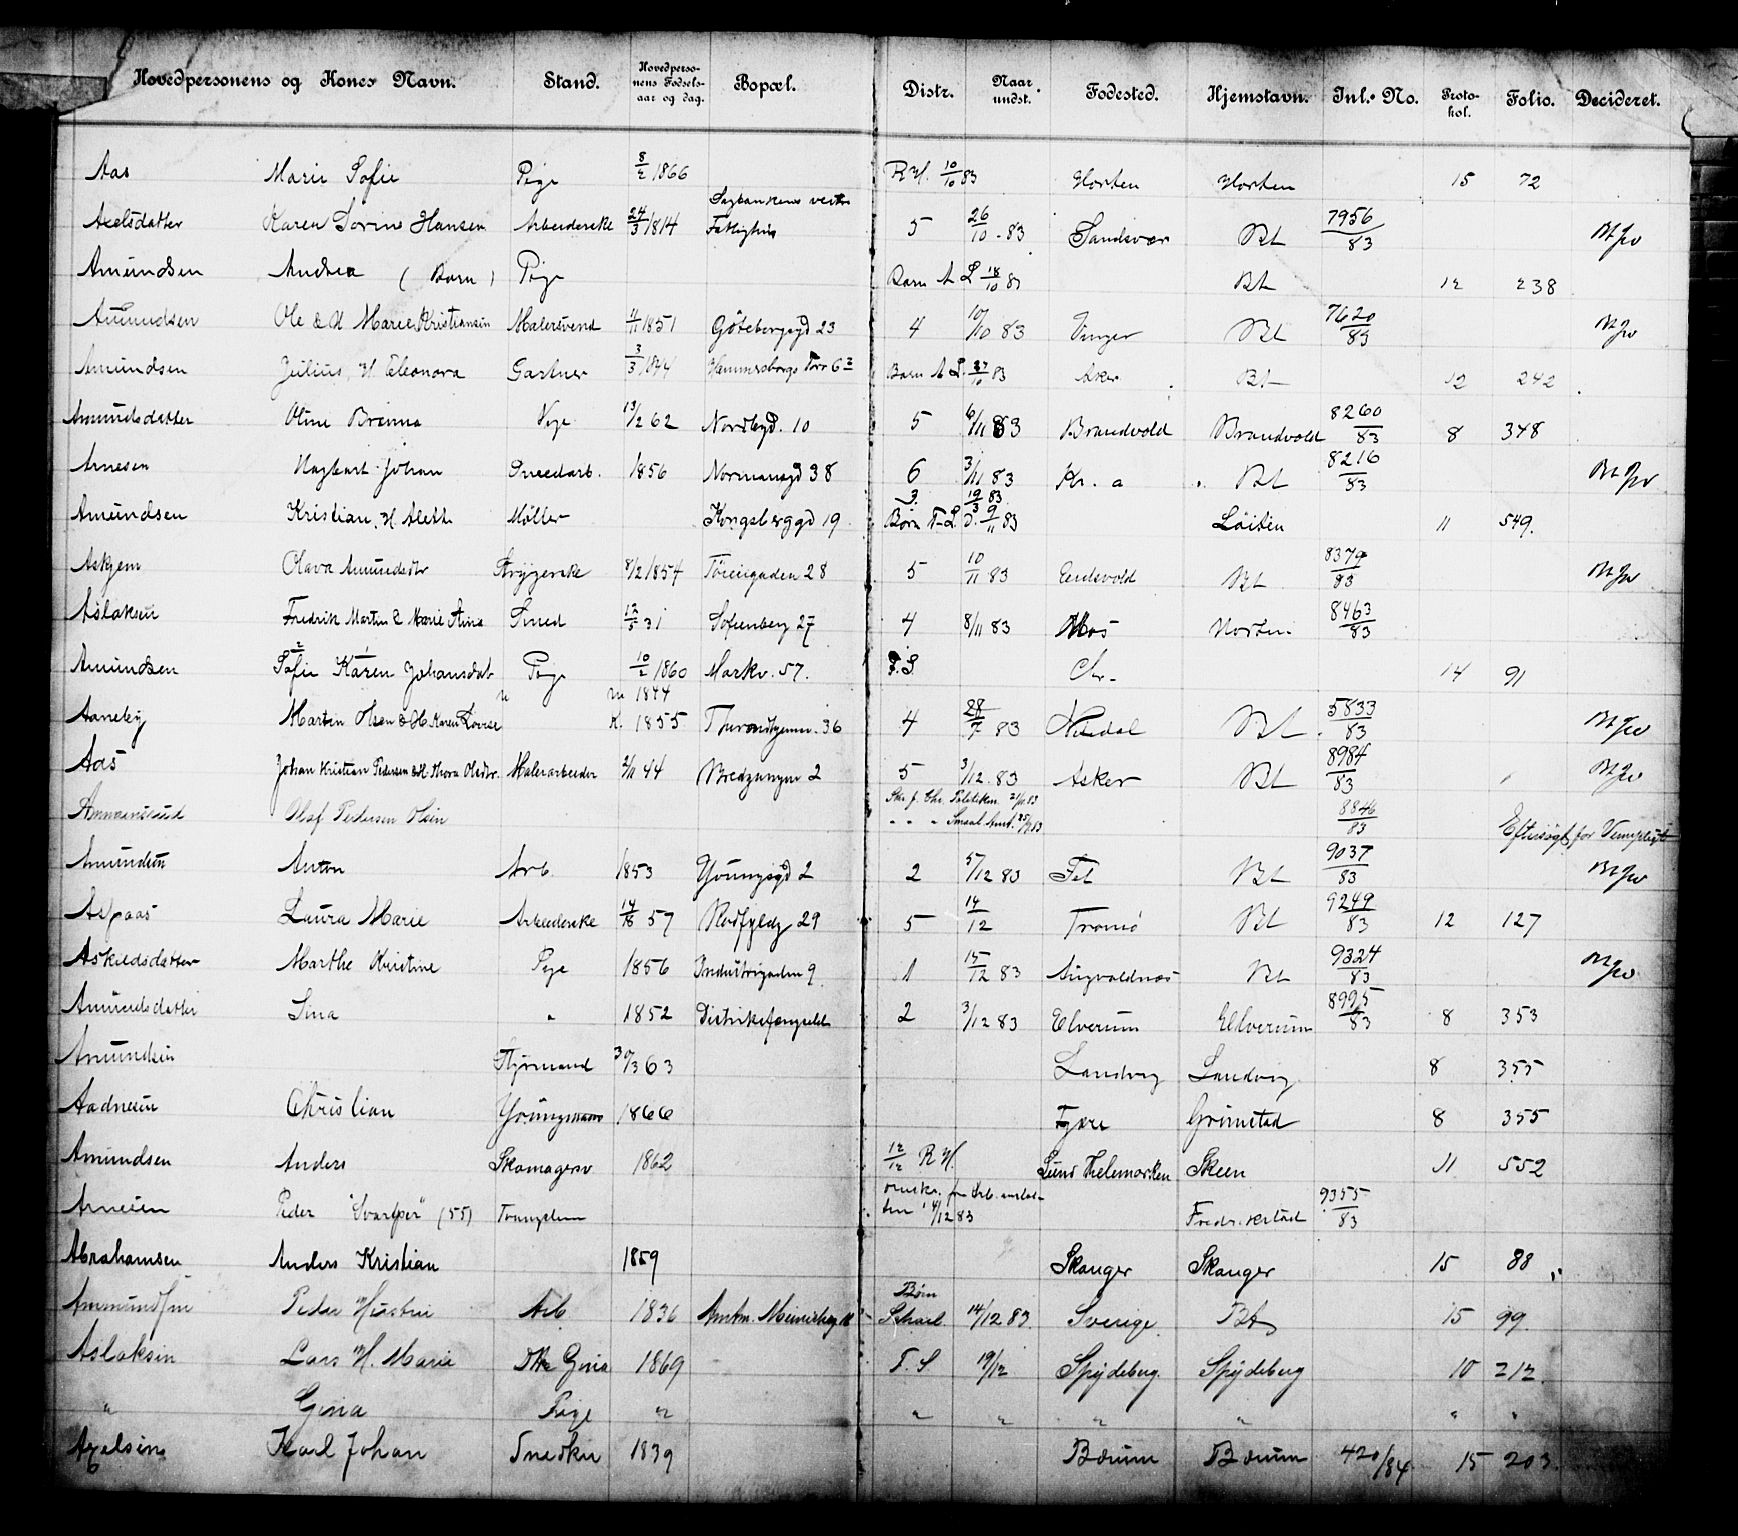 Hovedpersonens og Kones Navn. Stand. Hovedpersonens Fødselsaar og dag. Bopæl. Distr. Naar undst. Fødested. Hjemstavn. Inl. No. Protokol. Folio. Decideret.
Aas Marie Sofie Pige 8/2 1866 R.H. 10/10 83 Horten Horten 15 72
Axelsdatter Karen Hansen Arbeiderske 24/3 1814 Fattighus 5 26/10 - 83 Sandsvær Bt 7956/83
Amundsen Andrea (Barn) Pige Barn A L 18/10 83 Bt 12 238
Amundsen Ole & H Marie Kristiansen Malersvend 4/11 1851 Göteborggd 23 4 10/10 83 Vinger Bt 7620/83
Amundsen Julius, H. Eleonora Gartner 3/3 1844 Hammersborgs Torv 6 Barn A L. 27/10 83 Asker Bt 12 242
Amundsdatter Oline Pige 13/2 62 Nordbygd. 10 5 6/11 83 Brandvold Brandvold 8260/83 8 348
Arnesen Hagbart Johan Smedarb. 1856 Normansgd 38 6 3/11 83 Kr. a Bt 8216/83
Amundsen Kristian, H. Møller Kongsberggd 19 3. 19/3 83 Børn 9/11 83 Løiten 11 549.
Askjem Olava Amundsdtr Strygerske 8/2 1854 Tøiengaden 28 5 10/11 83 Eidsvold Bt 8379/83
Aslaksen Fredrik Martin & Marie Stina Smed 12/5 31 Sofienberg 27 4 8/11 83 Mos Horten 8463/83
Amundsen Sofie Karen Johansdat Pige 10/2 1860 Markv. 57. F.S. Chr. 14 91
Aaneby Martin Olsen & H. Karen Lovise m 1844 K. 1855 Throndhjemsv. 36 4 28/7 83 Bt 5833/83
Aas Johan Kristian Pedersen & H. Thora Olsdtr. Malerarbeider 2/11 44 Bredgangen 2 5 3/12 83 Asker Bt 8984/83
Olaf Pedersen Olsen Skr. f. Chr. Politikam. 21/11 83 8846/83 Eftersøgt for Vernepligt
Amundsen Anton Arb. 1853 Youngsgd 2 2 5/12 83 Fet Bt 9037/83
Aspaas Laura Marie Arbeiderske 57 Rodfyldg 29 5 14/12 Tromsø Bt 9249/83 12 127
Marthe Kristine Pige 1856 Industrigaden 9 1 15/12 83 Augvaldnæs Bt 9324/83
Amundsdatter Lina " 1852 Distriktsfængselet 2 3/12 83 Elverum Elverum 8995/83 8 353
Amundsen Styrmand 30/3 63 Landvig Landvig 8 355
Aadnesen Christian Youngmann 1866 Fjære Grimstad 8 355
Amundsen Anders Skomagersv 1862 12/12 R.H. Lund Thelemarken Skeen 11 552
Arnesen Peder "Svartper" (55) Arb.anstalten 14/12 83 Fredrikstad 9355/83
Abrahamsen Anders Kristian 1859 Skauger Skauger 15 88
Peder Arb 1836 Børn 14/12 83 Sverige Bt 15 99.
Aslaksen Lars H. Marie Gina 1869 F. S. 19/12 Spydeberg. Spydeberg 10 212.
" Gina Pige " " " " " " "
Axelsen Karl Johan Snedker 1839 Bærum Bærum 420/84 15 203.